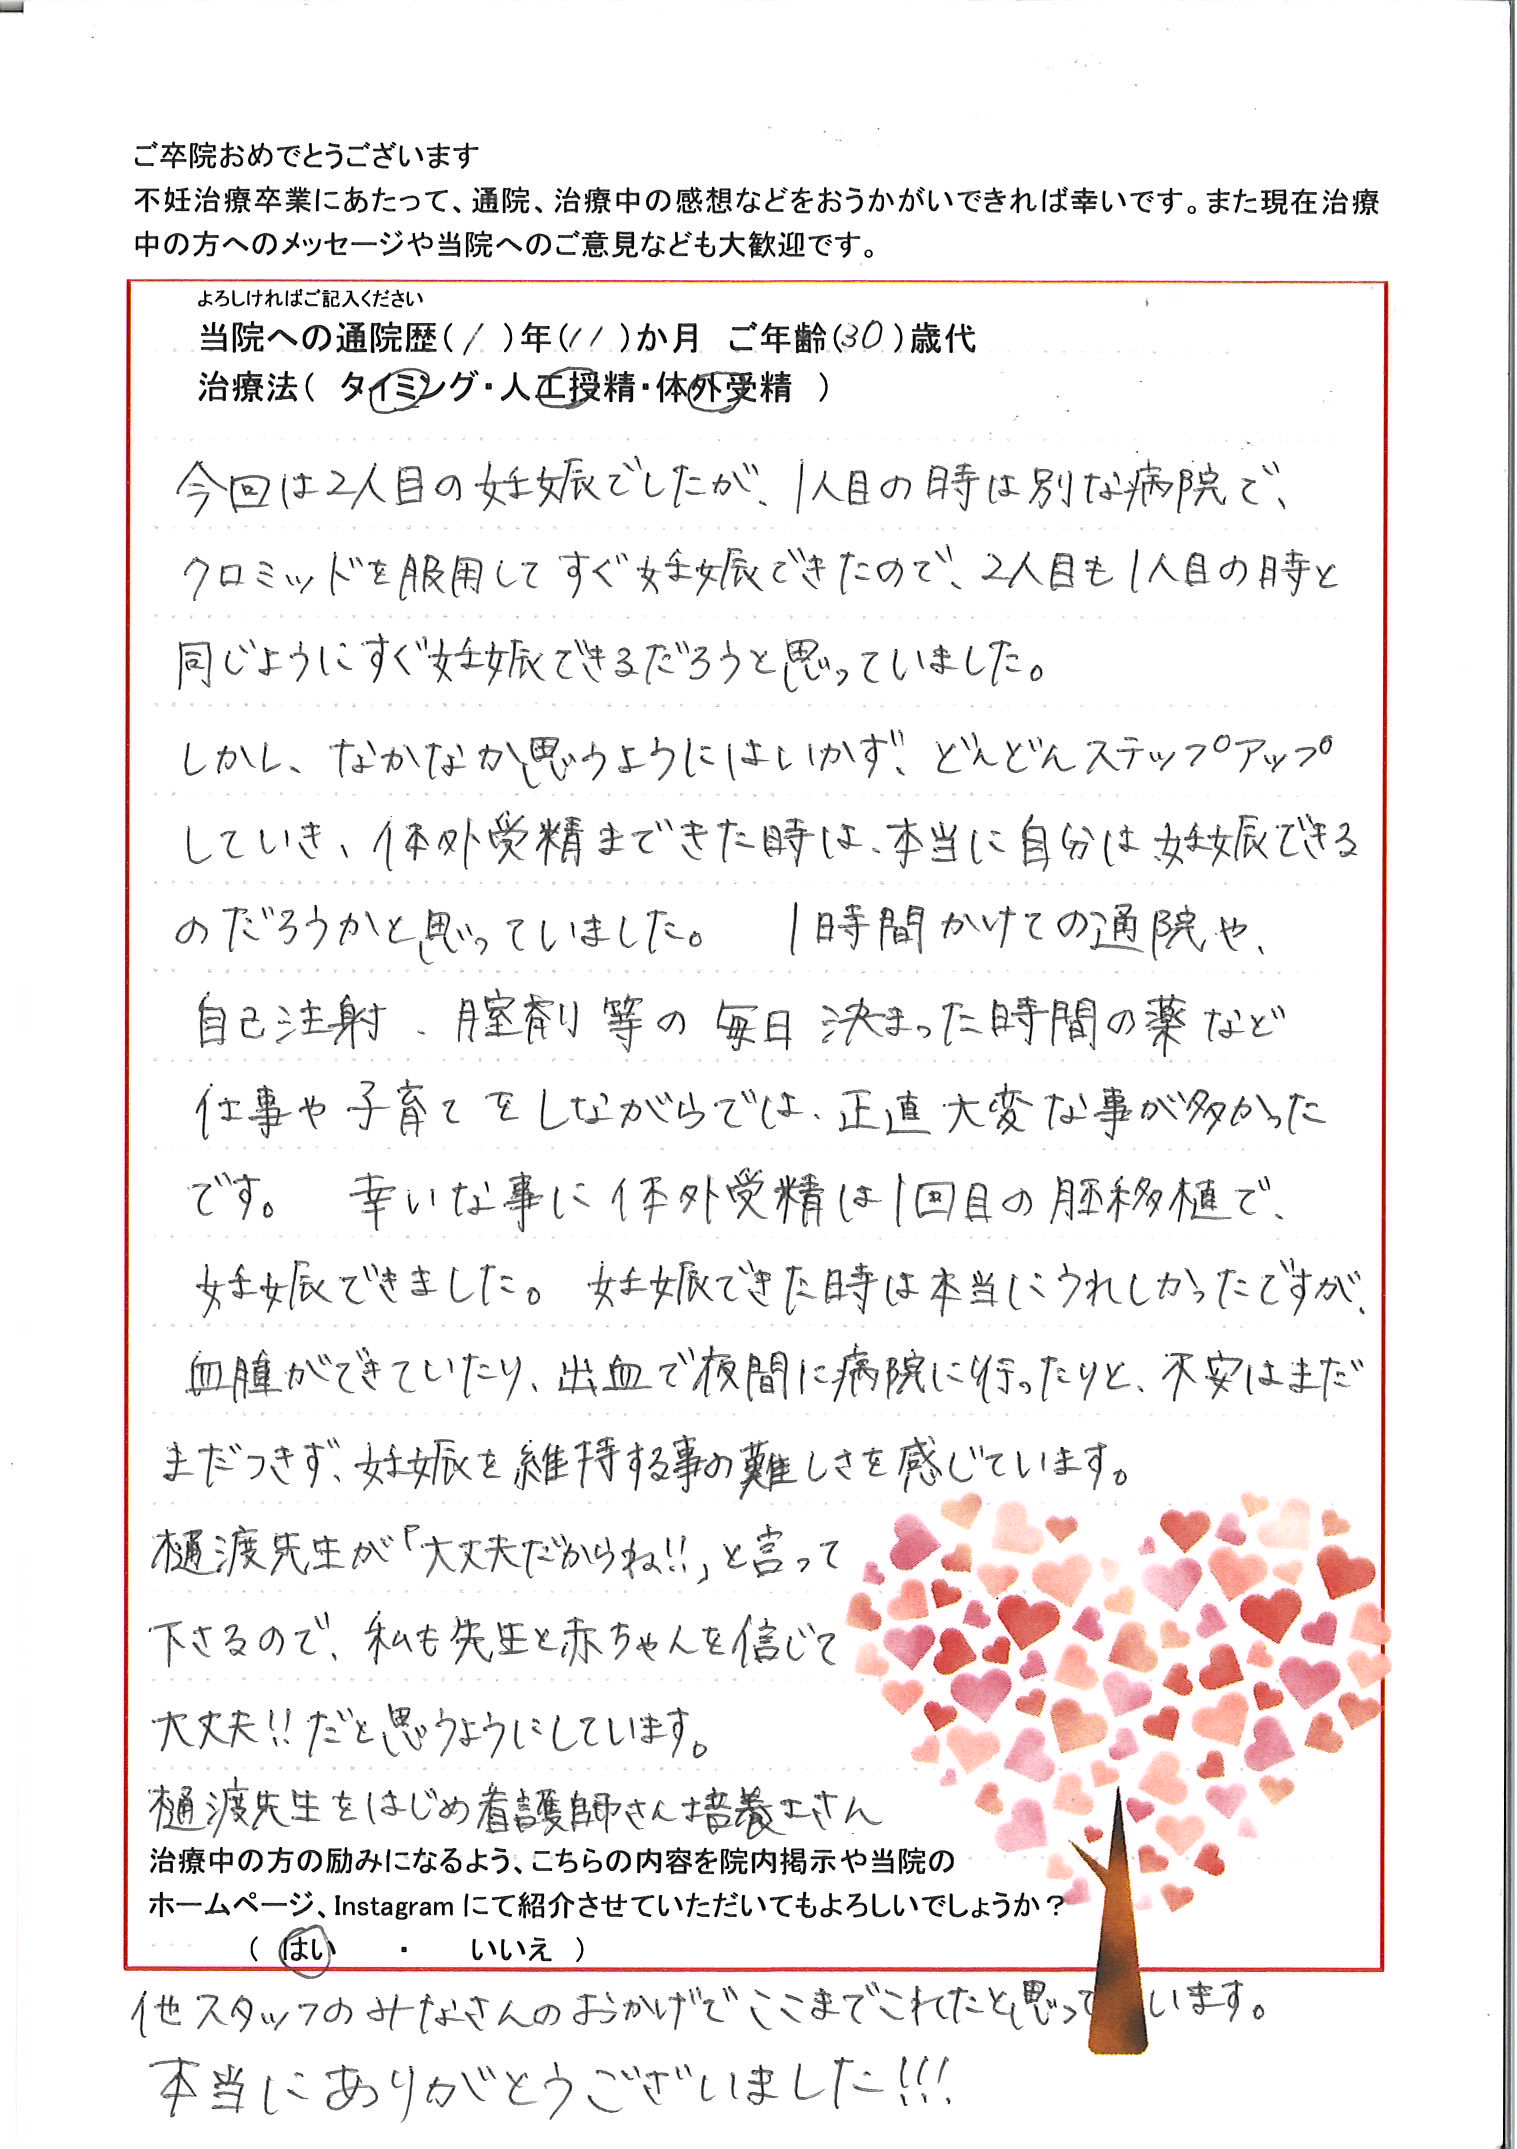 ご卒院おめでとうございます
不妊治療卒業にあたって、通院、治療中の感想などをおうかがいできれば幸いです。また現在治療
中の方へのメッセージや当院へのご意見なども大歓迎です。
よろしければご記入ください
当院への通院歴(1)年(11)か月 ご年齢(30)歳代
治療法( タイミング・人工授精・体外受精 )
今回は2人目の妊娠でしたが、1人目の時は別な病院で、
クロミッドを服用してすぐ妊娠できたので、2人目も1人目の時と
同じようにすぐ妊娠できるだろうと思っていました。
しかし、なかなか思うようにはいかず、どんどんステップアップ
していき、体外受精まできた時は、本当に自分は妊娠できる
のだろうかと思っていました。 1時間かけての通院や、
自己注射、膣剤等の毎日決まった時間の薬など
仕事や子育てをしながらでは、正直大変な事が多かった
です。 幸いな事に体外受精は1回目の胚移植で、
妊娠できました。 妊娠できた時は本当にうれしかったですが、
血腫ができていたり、出血で夜間に病院に行ったりと、不安はまだ
まだつきず、妊娠を維持する事の難しさを感じています。
樋渡先生が「大丈夫だからね!!」と言って
下さるので、私も先生と赤ちゃんを信じて
大丈夫!!だと思うようにしています。
樋渡先生をはじめ看護師さん培養士さん
治療中の方の励みになるよう、こちらの内容を院内掲示や当院の
ホームページ、Instagramにて紹介させていただいてもよろしいでしょうか?
( はい ・ いいえ )
他スタッフのみなさんのおかげでここまでこれたと思っています。
本当にありがとうございました!!!